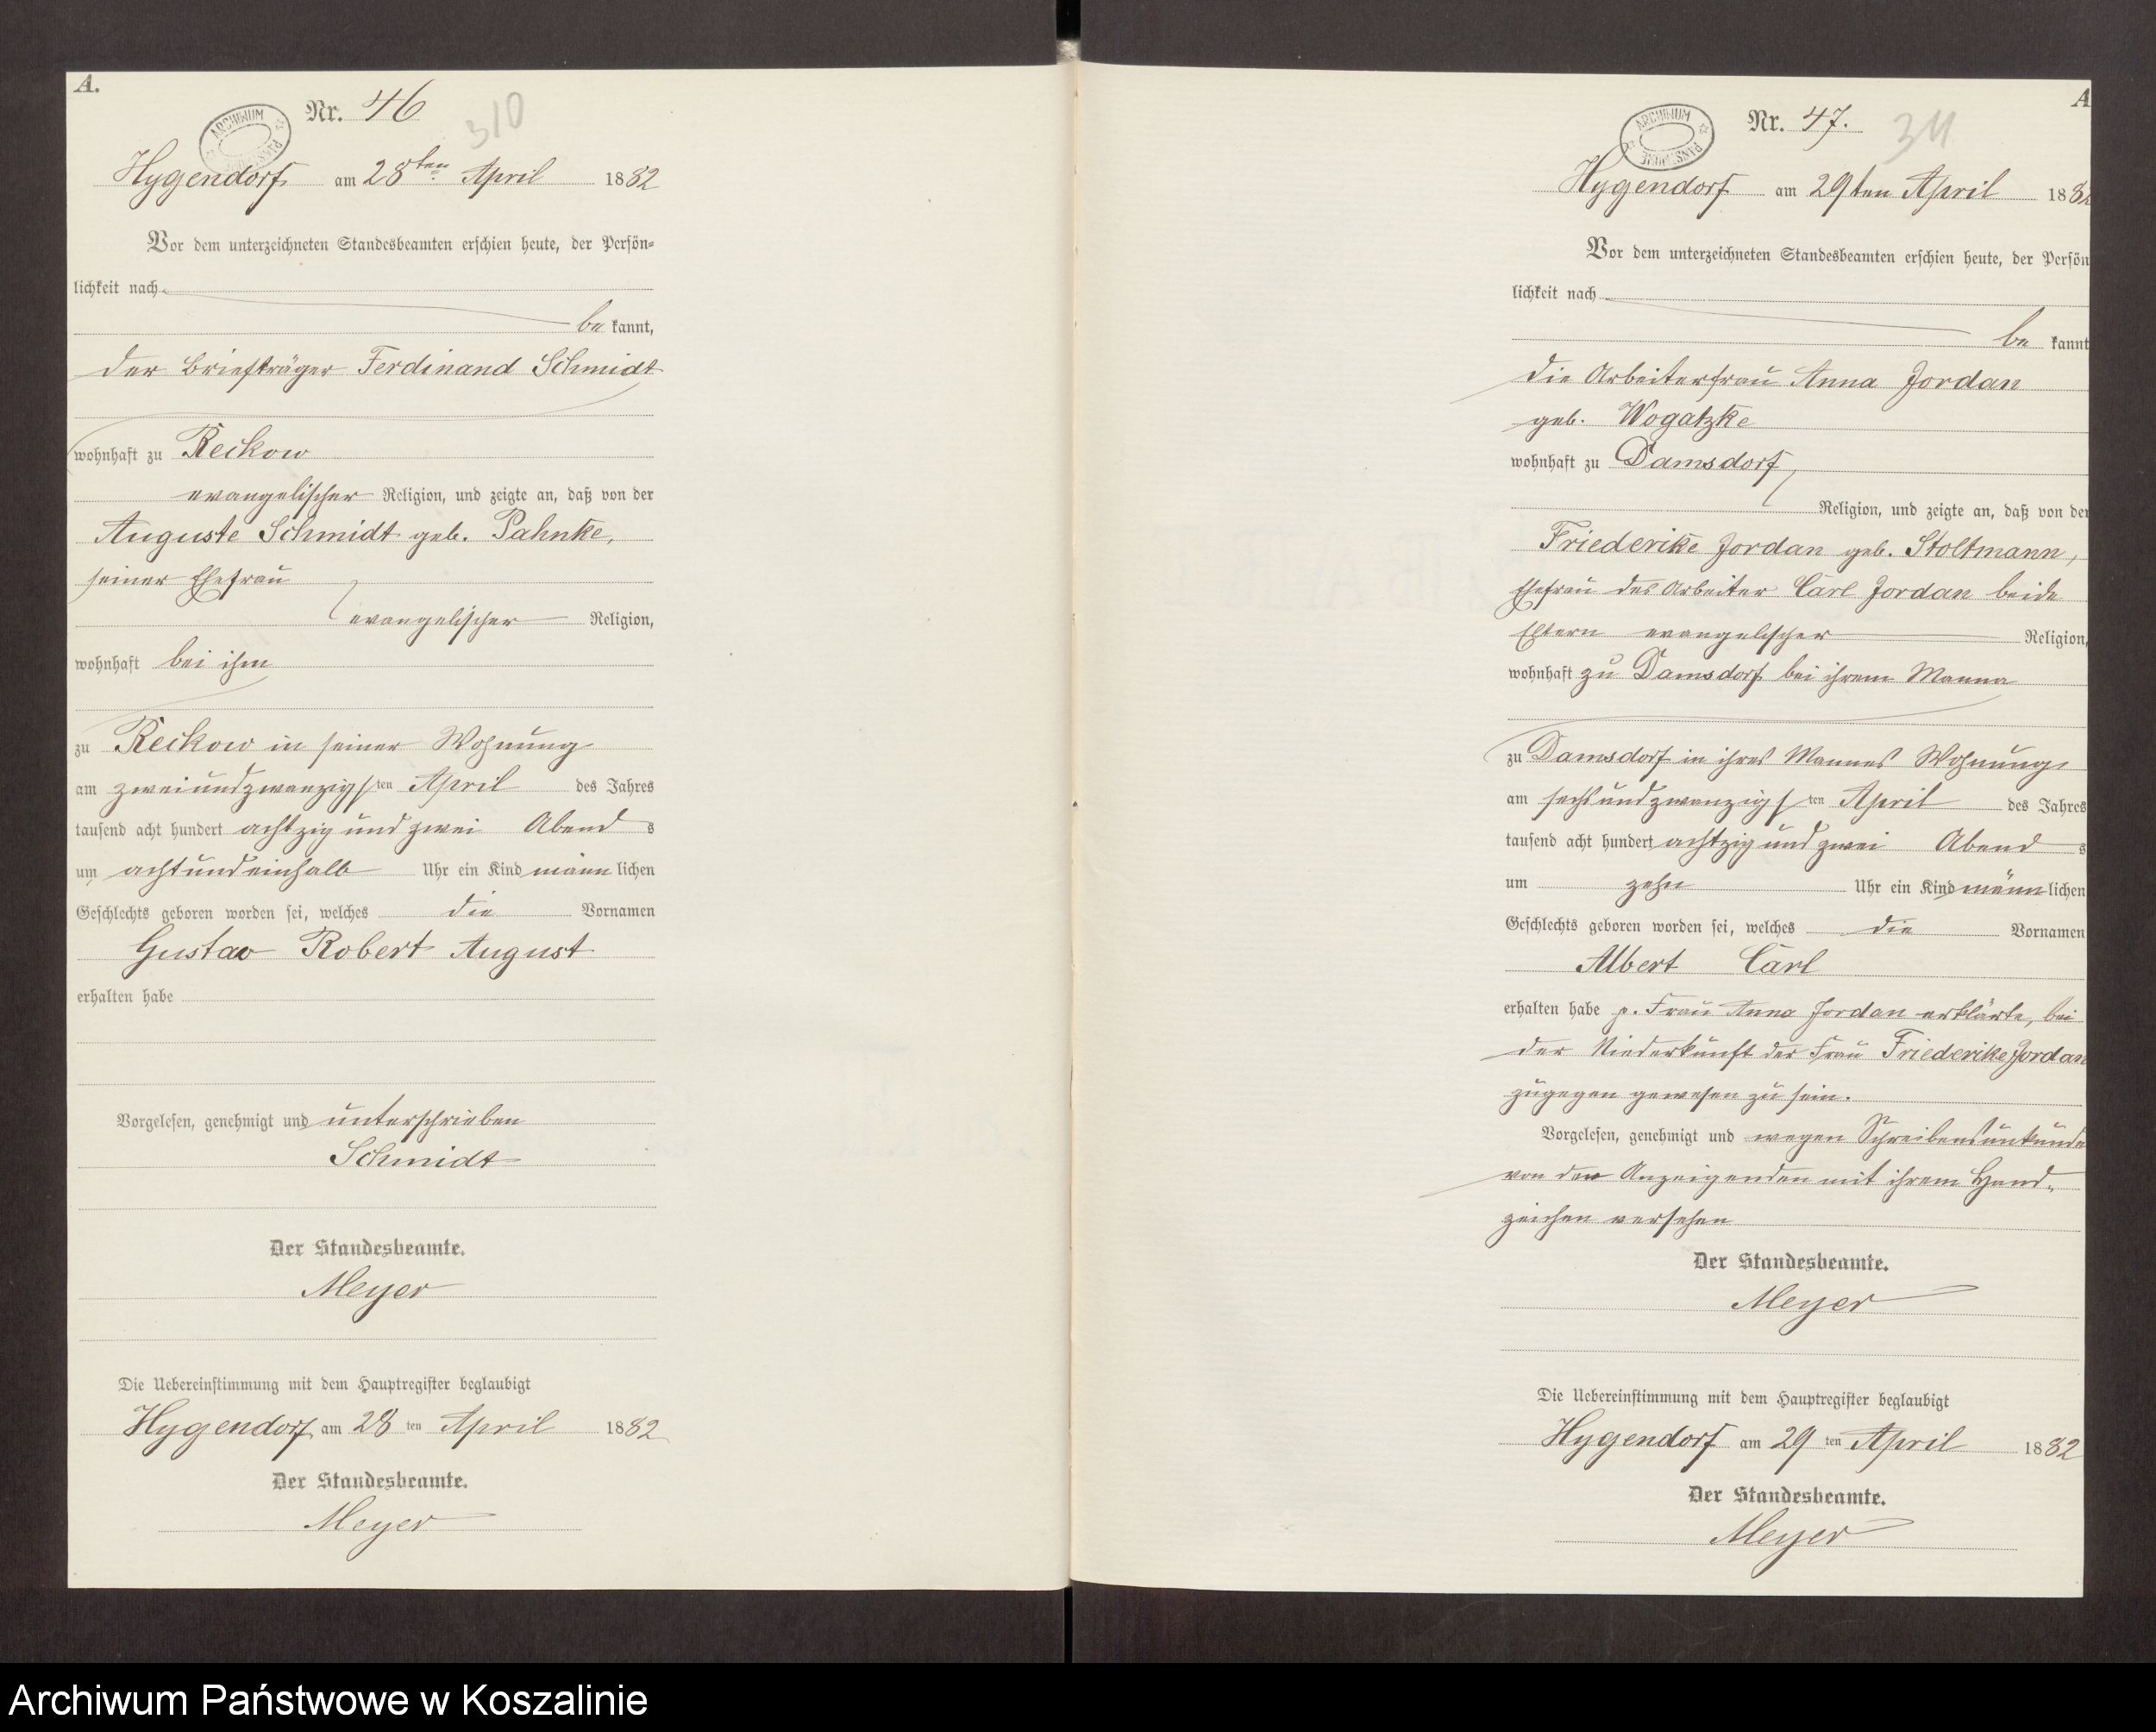 A.
Nr. 46
310
ARCHIWUM PAŃSTWOWE
Hygendorf am 28ten April 1882
Vor dem unterzeichneten Standesbeamten erschien heute, der Persön-
lichkeit nach
be kannt,
der Briefträger Ferdinand Schmidt
wohnhaft zu Reckow
evangelischer Religion, und zeigte an, daß von der
Auguste Schmidt geb. Pahnke,
seiner Ehefrau
evangelischer Religion,
wohnhaft bei ihm
zu Reckow in seiner Wohnung
am zweiundzwanzigsten April des Jahres
tausend acht hundert achtzig und zwei Abends
um achtundeinhalb Uhr ein Kind männlichen
Geschlechts geboren worden sei, welches die Vornamen
Gustav Robert August
erhalten habe
Vorgelesen, genehmigt und unterschrieben
Schmidt
Der Standesbeamte.
Meyer
Die Uebereinstimmung mit dem Hauptregister beglaubigt
Hygendorf am 28ten April 1882
Der Standesbeamte.
Meyer
A
Nr. 47.
311
ARCHIWUM PAŃSTWOWE
Hygendorf am 29ten April 1882
Vor dem unterzeichneten Standesbeamten erschien heute, der Persön
lichkeit nach
be kannt
die Arbeiterfrau Anna Jordan
geb. Wogatzke
wohnhaft zu Damsdorf
Religion, und zeigte an, daß von der
Friederike Jordan geb. Stoltmann,
Ehefrau des Arbeiter Carl Jordan beide
Eltern evangelischer Religion,
wohnhaft zu Damsdorf bei ihrem Manne
zu Damsdorf in ihres Mannes Wohnung
am sechsundzwanzigsten April des Jahres
tausend acht hundert achtzig und zwei Abends
um zehn Uhr ein Kind männlichen
Geschlechts geboren worden sei, welches die Vornamen
Albert Carl
erhalten habe p. Frau Anna Jordan erklärte, bei
der Niederkunft der Frau Friederike Jordan
zugegen gewesen zu sein.
Vorgelesen, genehmigt und wegen Schreibensunkunde
von der Anzeigenden mit ihrem Hand-
zeichen versehen
Der Standesbeamte.
Meyer
Die Uebereinstimmung mit dem Hauptregister beglaubigt
Hygendorf am 29ten April 1882
Der Standesbeamte.
Meyer
Archiwum Państwowe w Koszalinie